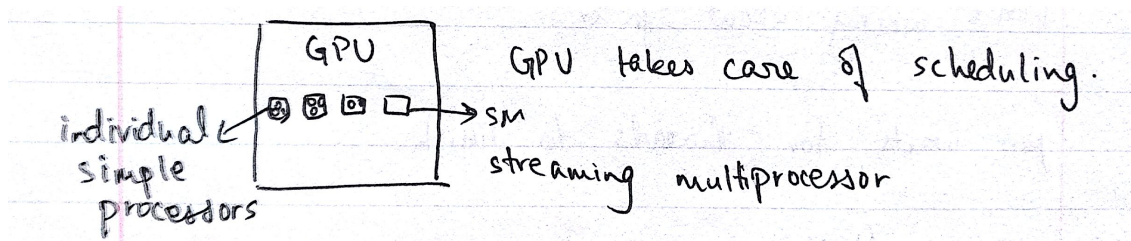 GPU
GPU takes care of scheduling.
individual
simple
processors
SM
streaming multiprocessor